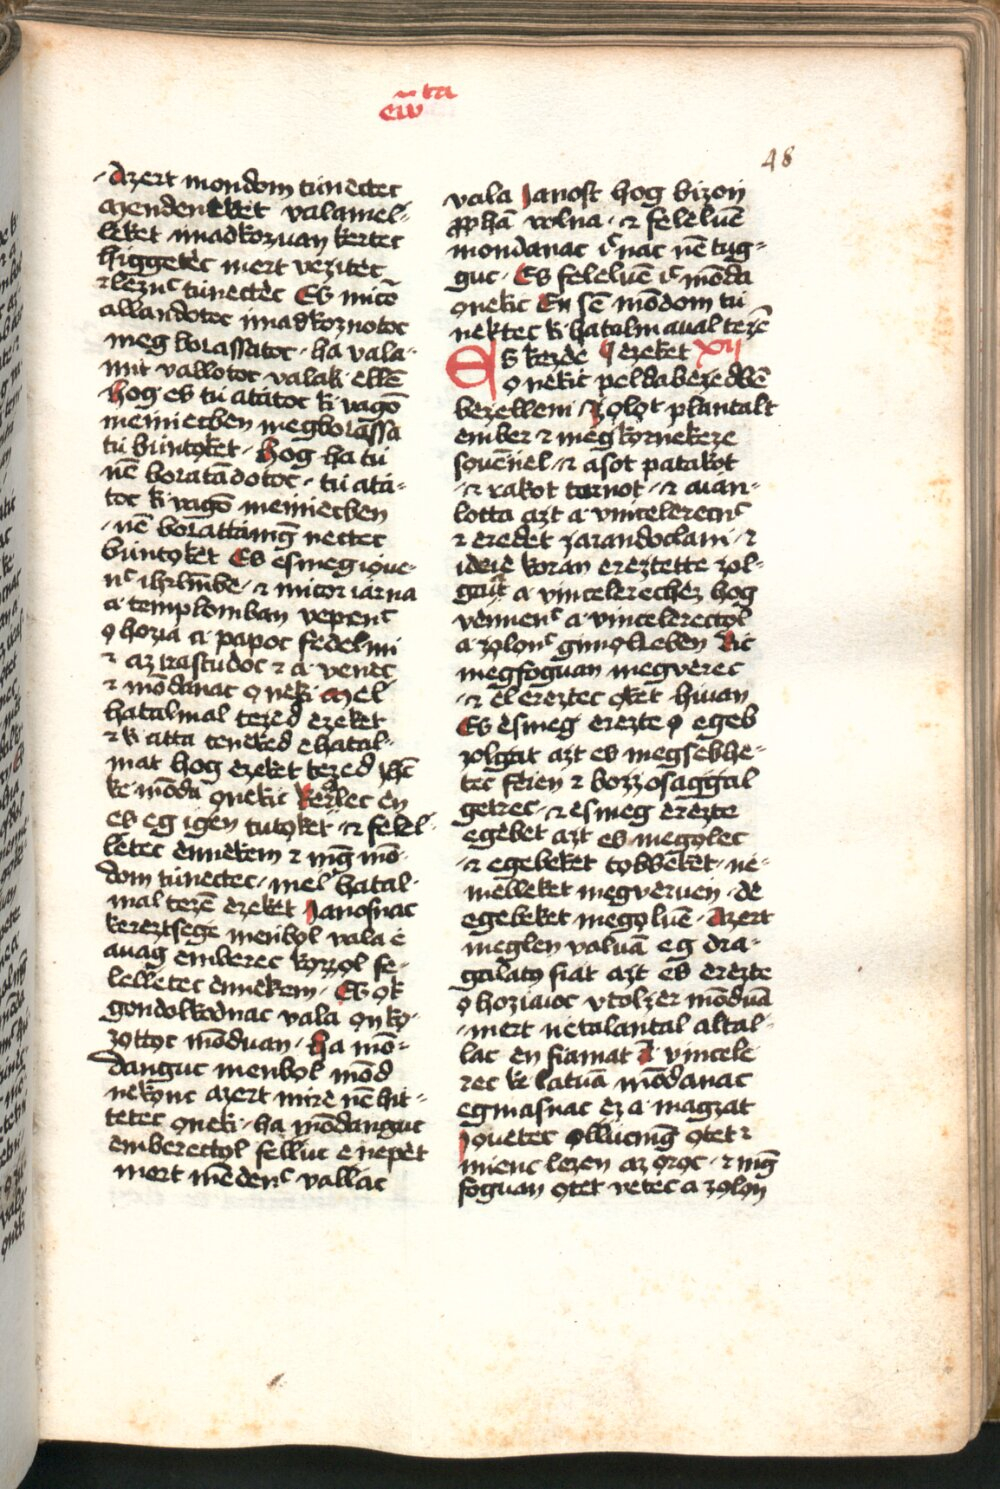 eūⁿta
48
Azert mondom tùnectec
Mendenèkèt valamel-
lèket imadkozuan kertec
higgètèc mert vèzitèc
⁊ lèznᶜ tùnectèc Eſ micō
allandotoc imadkoznotoc
meg boċassatoc · ha vala-
mit vallotoc valaki ellē
Hog eſ tù atʼatoc ki vagō
meńńècben megboċassa
tù bùnto̗ket · Hog ha tù
nē boċatādotoc · tù atʼa-
toc ki vagō meńńècben
nē boċattaming nectec
bùnto̗ket Eſ esmeg io̗ue-
nᶜ ihrlmbè · ⁊ micor iarna
a templomban vèpènᶜ
o̗ hozia a papoc fedèlmi
⁊ az irastudoc ⁊ a venec
⁊ mōdanac o̗nèki Mel
hatalmal tèzèd ezeket
⁊ ki atta tènèked è hatal-
mat hog ezeket tezed ihc̄
kè mōdū o̗nèkic Kerlec èn
eſ eg igen tùto̗ket · ⁊ felèl-
lètec ènnèkem ⁊ mḡ mō-
dom tùnectec · mel hatal-
mal tezē ezeket Janosnac
kèrèztsege menbo̗l vala è
auag èmberec ko̗zzo̗l fe-
lèllètec ènnèkem · Eſ o̗k
gondolkodnac vala o̗n ko̗-
zo̗tto̗c mōduan · Ha mō-
danguc menbo̗l mōd
nèko̗nc azert mire nē hit-
tètec o̗nèki · ha mōdanguc
èmberecto̗l felluc è nepèt
mert mēdenᶜ vallʼac
vala Janost hog bizoń
ꝓpħa volna · ⁊ feleluē
mondanac iᶜnac nē tug-
guc · Eſ feleluē iᶜ mōda
o̗nèkic En sē mōdom tù
nèktec ki hatalmaual tezē
Eſ kezde ¶ ezeket XII
o̗nèkic peldabezedbē
bezelleni Zo̗lo̗t plantalt
èmber ⁊ meg ko̗rńèkeze
so̗uēńńel · ⁊ asot patako̗t
⁊ rakot tornot · ⁊ aian-
lotta azt a vincelerecnᶜ
⁊ eredèt zarandoclani · ⁊
ideiè koran èreztètte zol-
gaiat a vincelèrechez hog
vènnenᶜ a vincelèrecto̗l
a zo̗lo̗nᶜ gimo̗lčeben Kic
megfoguan megvèrec
⁊ èl èreztec o̗tèt hiuan
Eſ èsmeg èrezte o̗ egèb
zolgaiat azt eſ megsèbhe-
tec feièn ⁊ bozzosaggal
getrec · ⁊ èsmeg èrèzte
egèbèt azt eſ mego̗lec
⁊ egèbekèt to̗bbèkèt · ne-
mellèket megvèruèn · dè
egèbèket mego̗luē · Azert
meglen valuā èg dra-
galato̗s fiat azt eſ èrèzte
o̗ hoziaioc vtolzèr mōduā
mert netalantal altal-
lac èn fiamat A vincèlè-
rec kè latuā mōdanac
egmasnac èz a magzat
Jo̗uètec o̗llùcmg̊ o̗tèt ⁊
miènc lèzèn az o̗ro̗c · ⁊ mg̊
foguan o̗tèt vètec a zo̗lo̗n